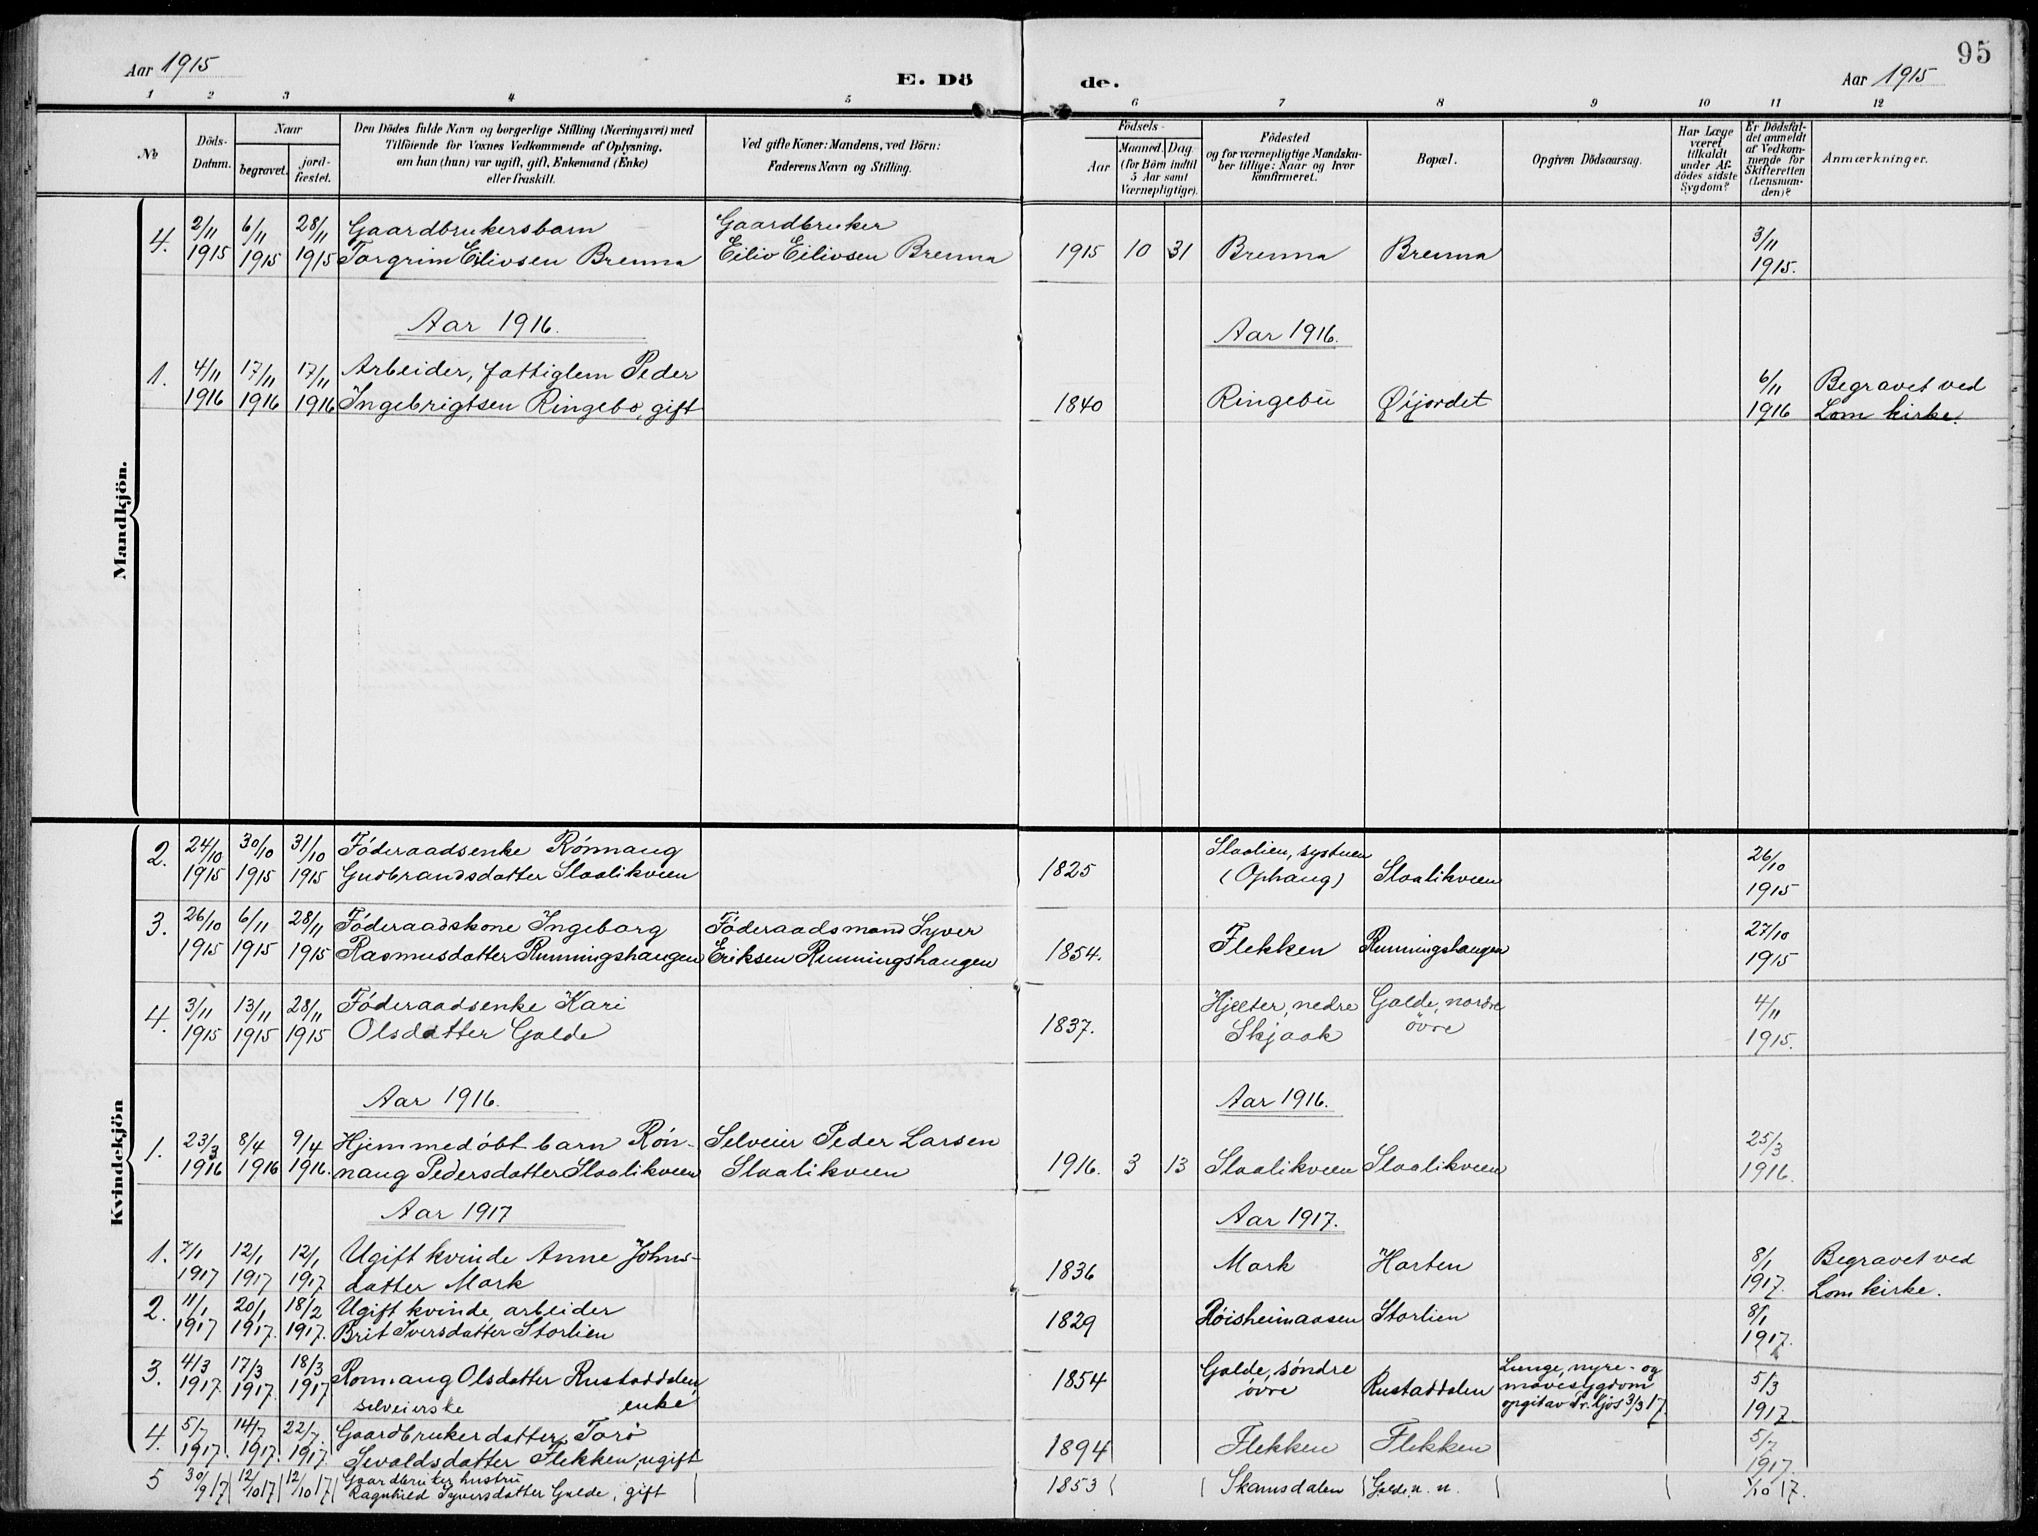 95
Aar 1915
E. Dö
de.
Aar 1915
1 2 3 4 5 6 7 8 9 10 11 12
No
Döds-
Datum.
Naar
begravet.
jord-
fæstet.
Den Dödes fulde Navn og borgerlige Stilling (Næringsvei) med
Tilföiende for Voxnes Vedkommende af Oplysning,
om han (hun) var ugift, gift, Enkemand (Enke)
eller fraskilt.
Ved gifte Koner: Mandens, ved Börn:
Faderens Navn og Stilling.
Födsels-
Aar
Maaned. Dag.
(for Börn indtil
5 Aar samt
Værnepligtige).
Födested
og for værnepligtige Mandska-
ber tillige: Naar og hvor
konfirmeret.
Bopæl.
Opgiven Dödsaarsag.
Har Læge
været
tilkaldt
under Af-
dödes sidste
Sygdom?
Er Dödsfal-
det anmeldt
af Vedkom-
mende for
Skifteretten
(Lensman-
den)?
Anmærkninger.
Mandkjön.
4. 2/11 6/11 28/11 Gaardbrukersbarn Gaardbruker 3/11
1915 1915 1915 Torgrim Eilivsen Brenna Eiliv Eilivsen Brenna 1915 10 31 Brenna Brenna 1915.
Aar 1916. Aar 1916.
1. 4/11 17/11 17/11 Arbeider, fattiglem Peder 6/11 Begravet ved
1916 1916 1916 Ingebrigtsen Ringebo, gift 1840 Ringebu Øijordet 1916 Lom kirke.
Kvindekjön
2. 24/10 30/10 31/10 Föderaadsenke Rönnaug Slaalien, systuen 26/10
1915 1915 1915 Gudbrandsdatter Slaalikveen 1825 (Ophaug) Slaalikveen 1915
3. 26/10 6/11 28/11 Föderaadskone Ingeborg Föderaadsmand Syver 27/10
1915 1915 1915 Rasmusdatter Runningshaugen Eriksen Runningshaugen 1854. Flekken Runningshaugen 1915
4. 3/11 13/11 28/11 Föderaadsenke Kari Hjelter, nedre Galde, nordre 4/11
1915 1915 1915 Olsdatter Galde 1837. Skjaak övre 1915.
Aar 1916. Aar 1916.
1. 23/3 8/4 9/4 Hjemmedöbt barn Rön- Selveier Peder Larsen 25/3
1916 1916 1916. naug Pedersdatter Slaalikveen Slaalikveen 1916. 3 13 Slaalikveen Slaalikveen 1916.
Aar 1917 Aar 1917.
1. 7/1 12/1 12/1 Ugift kvinde Anne Johns- 8/1 Begravet ved
1917 1917 1917 datter Mork 1836 Mork Horten 1917. Lom kirke.
2. 11/1 20/1 18/2 Ugift kvinde, arbeider 8/1
1917 1917. 1917. Brit Iversdatter Storlien 1829 Röisheimaasen Storlien 1917.
3. 4/3 17/3 18/3 Ronnaug Olsdatter Rustaddalen, Galde, söndre Lunge, nyre- og 5/3
1917. 1917. 1917 selveierske enke 1854 övre Rustaddalen mavesygdom 1917
opgit av Dr. Gjøs 3/3 17.
4. 5/7 14/7 22/7 Gaardbrukerdatter Torö 5/7
1917. 1917. 1917. Sevaldsdatter Flekken, ugift 1894 Flekken Flekken 1917.
5 30/9 17 12/10 17 12/10 17 Gaardbruker hustru
Ragnhild Syversdatter Galde, gift 1853 Skamsdalen Galde n. n. 1/10 17.